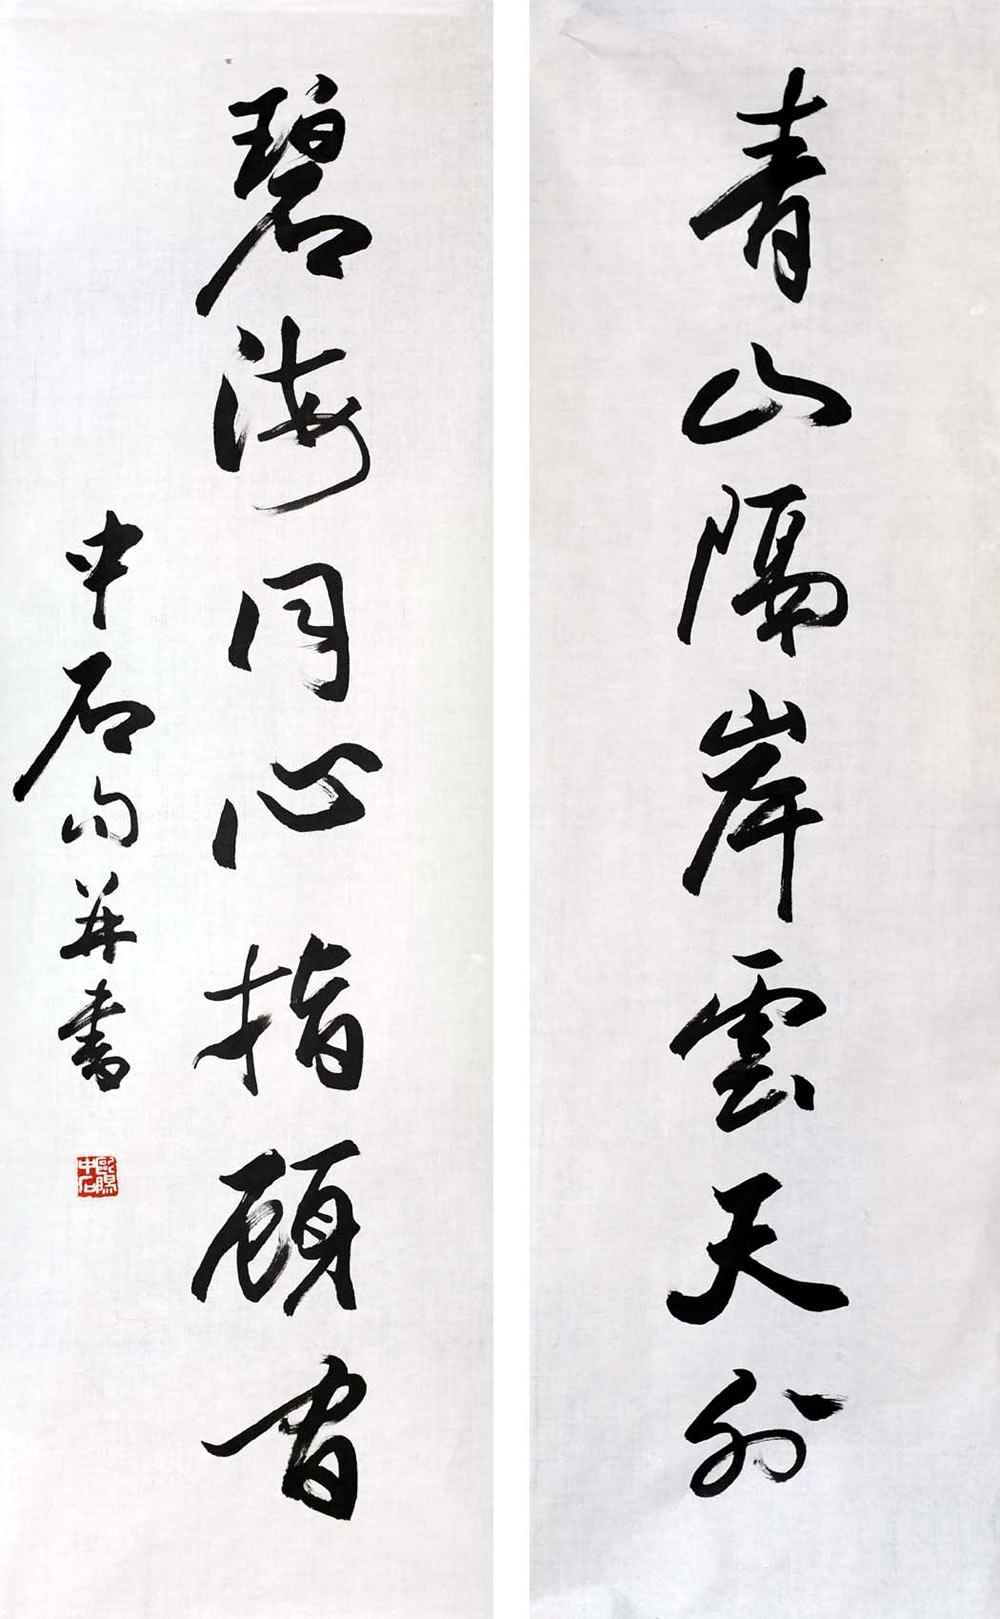 青山隔岸雲天外
碧海同心指顧間
中石句并書
歐陽中石